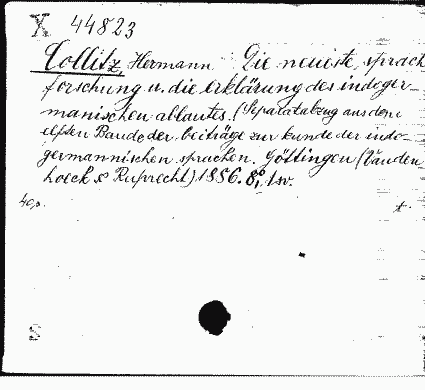 X 44823
Collitz, Hermann Die neueste sprach
forschung u. die erklärung des indoger-
manischen ablautes. (Separatabzug aus dem
elften Bande der beiträge zur kunde der indo-
germannischen sprachen. Göttingen (Vanden
hoeck & Ruprecht) 1886. 8°,